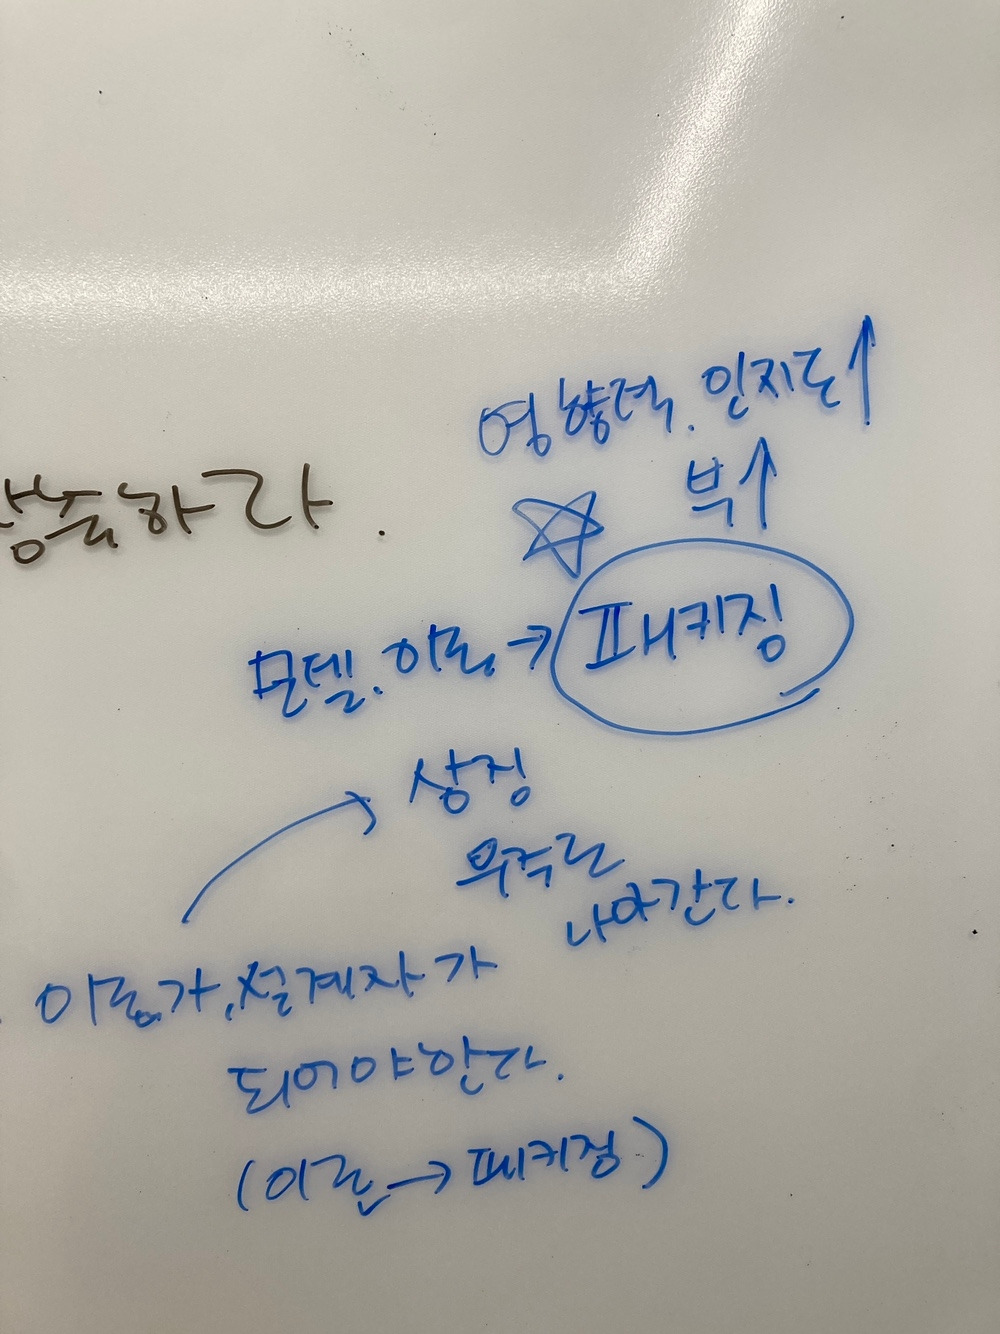 영향력. 인지도↑
부↑
습하라.
모델. 이론→ 패키징
상징
무적으로
나아간다.
이론가, 설계자가
되어야한다.
(이론→패키징)